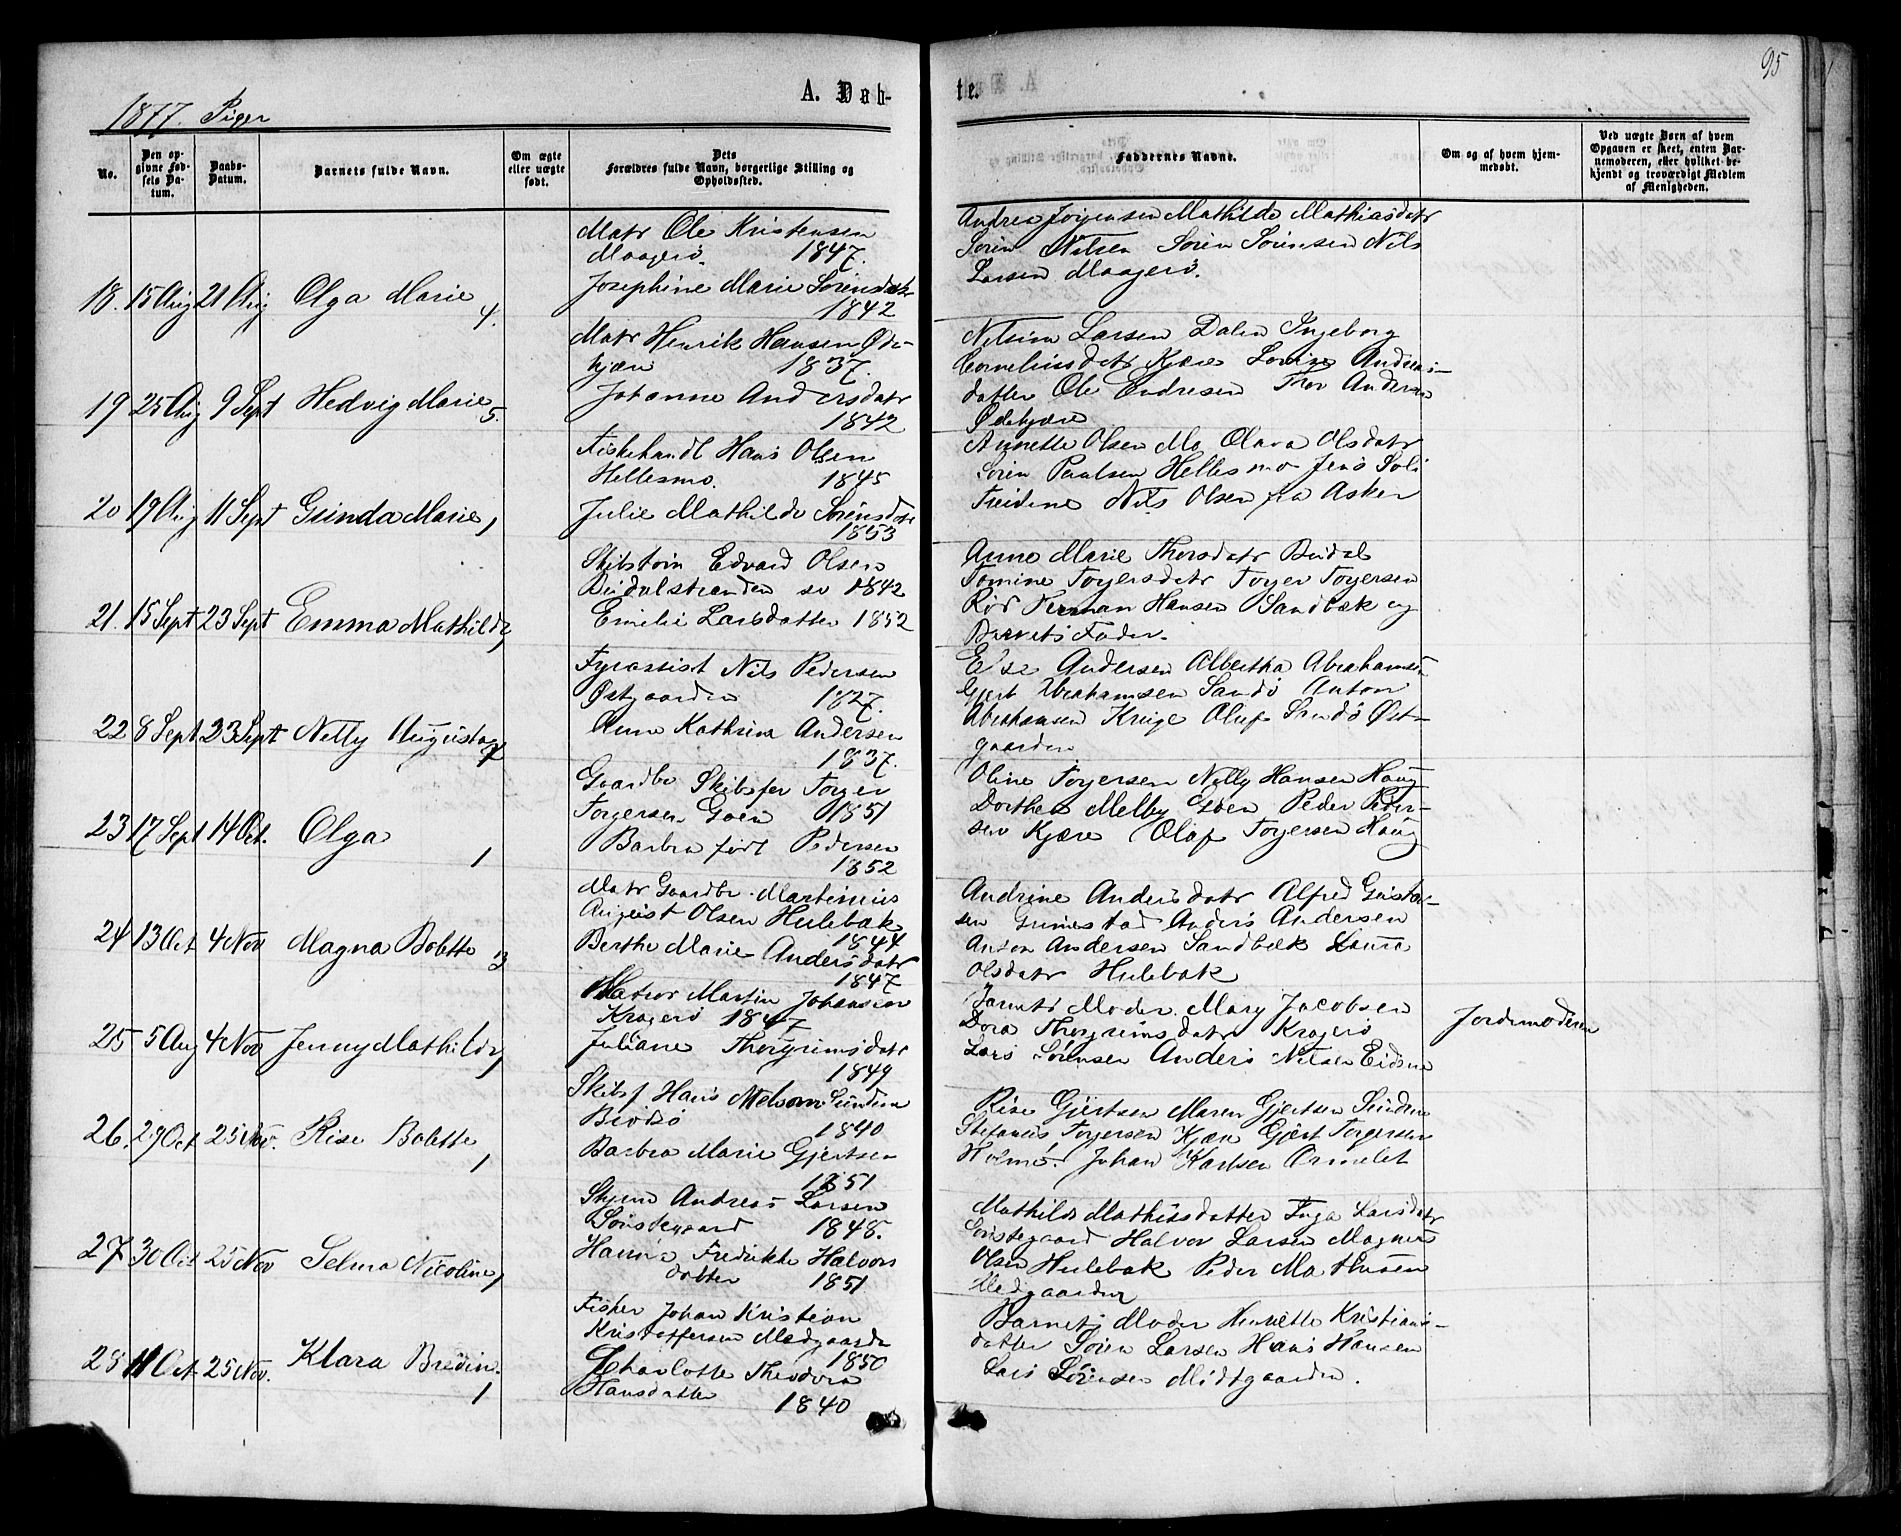 95
1877. Piger
A. Døb-
te.
No.
Den op-
givne Fød-
sels Da-
tum.
Daabs-
Datum.
Barnets fulde Navn.
Om ægte
eller uægte
født.
Dets
Forældres fulde Navn, borgerlige Stilling og
Opholdssted.
Faddernes Navne.
Om og af hvem hjem-
medøbt.
Ved uægte Børn af hvem
Opgaven er skeet, enten Bar-
nemoderen, eller hvilket be-
kjendt og troværdigt Medlem
af Menigheden.
18. 15 Aug 21 Aug Olga Marie 4.
Matr Ole Kristensen
Maagerö. 1847.
Josephine Marie Sörensdatr
1842
Andrea Jörgensen Mathilde Mathiasdatr
Sörin Nilsen Sören Sörensen Nils
Larsen Maagerö.
19 25 Aug 9 Sept Hedvig Marie 5.
Matr Henrik Hansen Øde-
kjær 1837.
Johanne Andersdatr
1842
Nilsine Larsen Dalen Ingeborg
Corneliusdatr Kjære Lovise Andreas-
datter Ole Endresen Thor Andersen
Ødekjære
20 19 Aug 11 Sept Gunda Marie 1
Fiskehandl Hans Olsen
Hellesmo. 1845
Julie Mathilde Sörensdatr
1853
Annette Olsen Mo Clara Olsdatr
Sören Paulsen Hellesmo Jens Soli
Nils Olsen fra Asker
21. 15 Sept 23 Sept Emma Mathilde 1
Skibstöm Edvard Olsen
Budalstranden 1842
Emilie Larsdatter 1852
Anne Marie Thorsdatr Budal
Tomine Torjersdatr Torjer Torjersen
Rör Herman Hansen Sandbæk og
Barnets Fader.
22 8 Sept 23 Sept Netty Augusta 7
Fyrassist Nils Pedersen
Østgaarden 1827.
Anne Kathrine Andersen
1837.
Else Andersen Albertha Abrahamsen
Gjert Abrahamsen Sandö Anton
Abrahamsen Kruge Oluf Sandö Øst-
gaarden
23 17 Sept 14 Oct. Olga 1
Gaardbr Skibsför Torger
Torgersen Goen 1851
Barbra født Pedersen
1852
Oline Torjersen Nelly Hansen Haug
Dorthea Melby Goen Peder Peder-
sen Kjære Olaf Torjersen Haug
24 13 Oct 4 Nov Magna Bolette 3
Matr Gaardbr. Martinius
August Olsen Hulebak
1844
Berthe Marie Andersdatr
1847
Andrine Andersdatr Alfred Gustav-
sen Grimestad Anders Andersen
Anton Andersen Sandbæk Laura
Olsdatr Hulebak
25 5 Aug 4 Nov Jenny Mathilde 1
Matros Martin Johansen
Kragerö 1847
Juliane Thorgrimsdatr
1849
Barnets Moder Mary Jacobsen
Dora Thorgrimsdatr Kragerö
Lars Sörensen Anders Nilsen Eidene
Jordemoderen
26. 29 Oct 25 Nov. Rise Bolette 1
Skibsf Hans Melsom Sundene
Brötsö 1840
Barbra Marie Gjertsen
1851
Rise Gjertsen Maren Gjertsen Sundene
Stefanus Torgersen Kjære Gjert Torgersen
Holmö. Johan Karlsen Ormelet
27 30 Oct 25 Nov Selma Nicoline 1
Stymn Andreas Larsen
Sönstegaard 1848.
Hanna Fredrikke Halvors
datter 1851
Mathilde Mathisdatter Inga Larsdatr
Sönstegaard Halvor Larsen Magnus
Olsen Hulebak Peder Mathisen
Medgaarden
28 11 Oct 25 Nov. Klara Bredine. 1
Fisker Johan Kristian
Kristoffersen Medgaarde
1850
Charlotte Theodora
Hansdatter 1840
Barnets Moder Henrette Kristians-
datter Sören Larsen Hans Hansen
Lars Sörensen Midtgaarden.